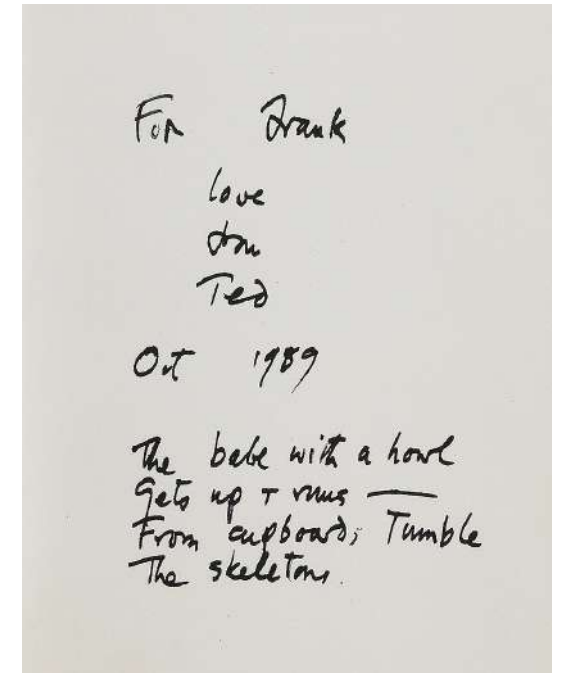 For Frank
love
from
Ted
Oct 1989
The babe with a howl
Gets up + runs —
From cupboards, Tumble
The skeletons.